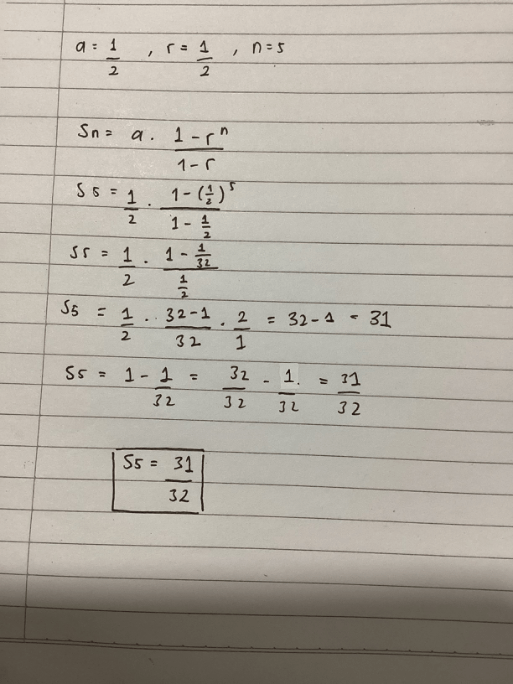 a = 1/2 , r = 1/2 , n = 5
Sn = a . (1 - r^n)/(1 - r)
S5 = 1/2 . (1 - (1/2)^5)/(1 - 1/2)
S5 = 1/2 . (1 - 1/32)/(1/2)
S5 = 1/2 . (32 - 1)/32 . 2/1 = 32 - 1 = 31
S5 = 1 - 1/32 = 32/32 - 1/32 = 31/32
S5 = 31/32